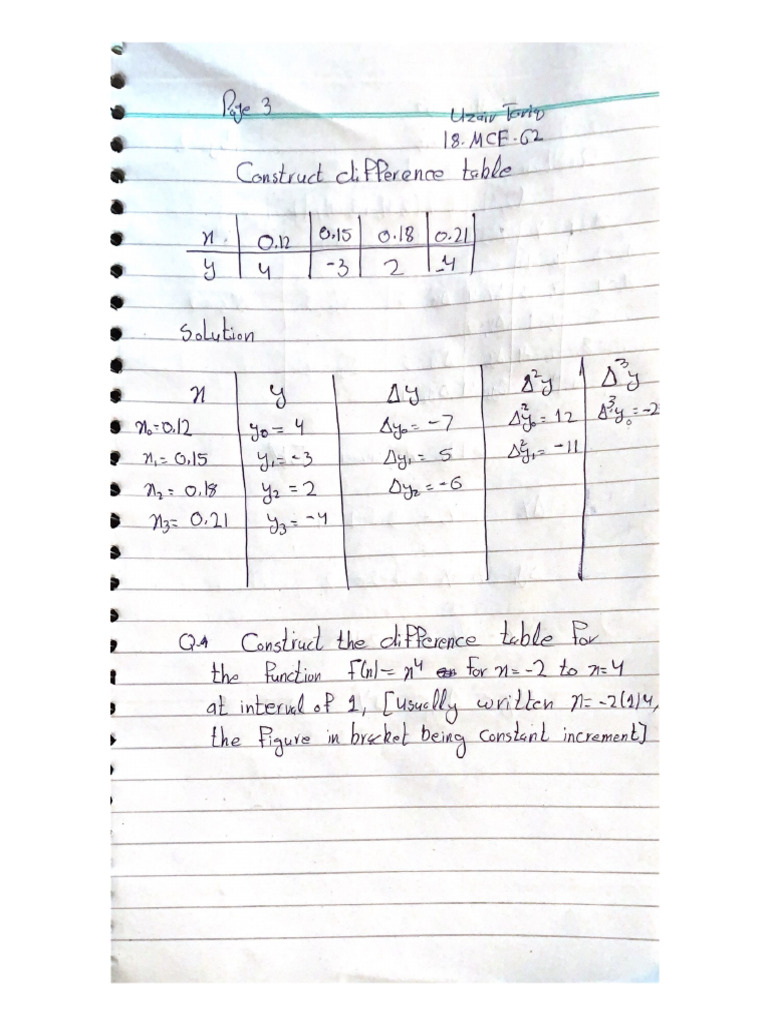 Page 3
Uzair Tariq
18-MCE-62
Construct difference table
x 0.12 0.15 0.18 0.21
y 4 -3 2 -4
Solution
x y Δy Δ²y Δ³y
x₀=0.12 y₀=4 Δy₀=-7 Δ²y₀=12 Δ³y₀=-2
x₁=0.15 y₁=-3 Δy₁=5 Δ²y₁=-11
x₂=0.18 y₂=2 Δy₂=-6
x₃=0.21 y₃=-4
Q.1 Construct the difference table for
the function f(x)=x⁴ for x=-2 to x=4
at interval of 1, [usually written x=-2(1)4,
the figure in bracket being constant increment]